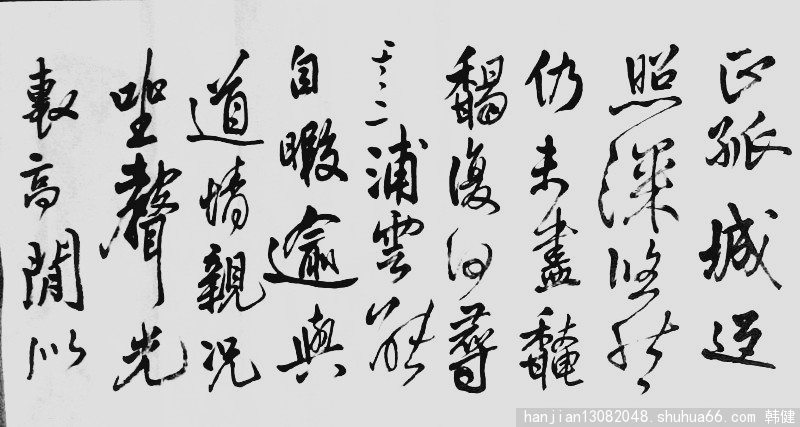 正孤城逆
照深悠然
仍未盡馣
復何尋
其二浦雲能
自暇逾與
道情親況
聖聲光
敷高閒似
hanjian13082048.shuhua66.com 韩健